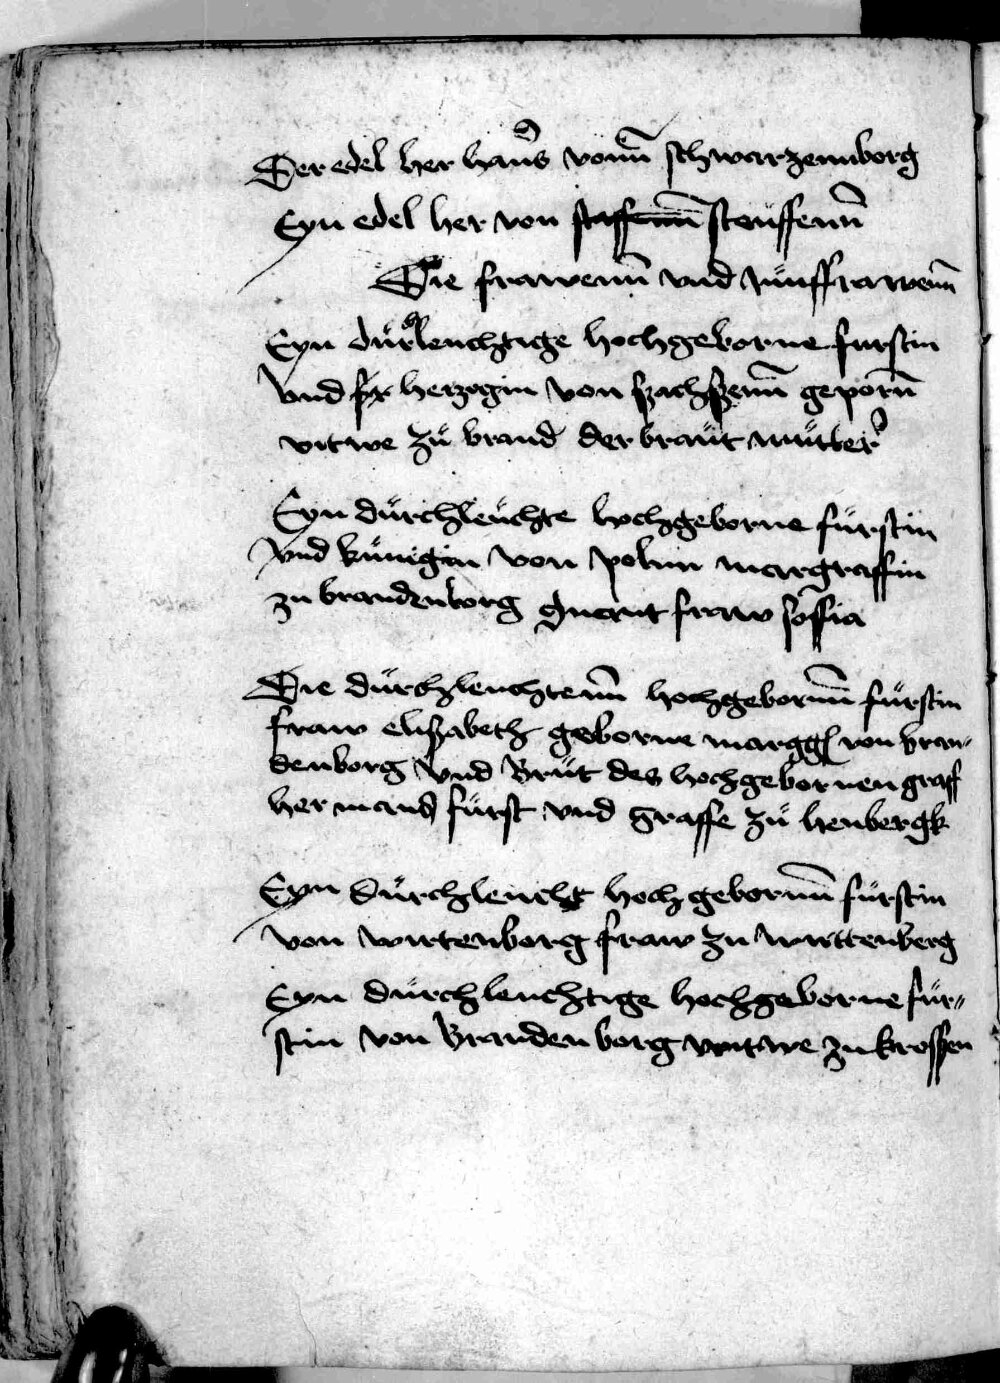 Der edel her hanns vonn schwarzennborg
Eyn edel her von staffenn stouffenn
Die frawenn vnd Junffrawenn
Eyn durchleuchtige hochgeborne furstin
vnd fr herzogin von sachssenn geporn
vitwe zů brand der braut můtter
Eyn dürchleuchte hochgeborne fürstin
vnd künigin von poln margraffin
zu brandenborg gnant fraw soffia
Die dürchleuchtenn hochgebornn fürstin
fraw elisabeth geborne margg von bran-
denborg vnd Brüt des hochgebornen graff
hermans fürst vnd graffe zů henbergk
Eyn dürchleucht hochgebornn fürstin
von wirtenborg fraw zu wirttenberg
Eyn dürchleuchtige hochgeborne für-
stin von Brandenborg witwe zu krossen